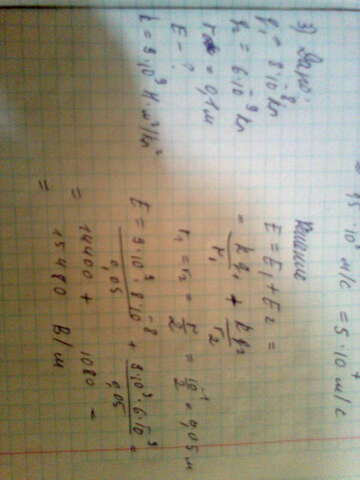 = 5·10⁴ м/с
3) Дано:
q₁ = 8·10⁻⁸ Кл
q₂ = 6·10⁻⁹ Кл
r = 0,1 м
E – ?
k = 9·10⁹ Н·м²/Кл²
Решение
E = E₁ + E₂ =
= kq₁/r₁ + kq₂/r₂
r₁ = r₂ = r/2 = 10⁻¹/2 = 0,05 м
E = 9·10⁹·8·10⁻⁸/0,05 + 9·10⁹·6·10⁻⁹/0,05 =
= 14400 + 1080 =
= 15480 В/м